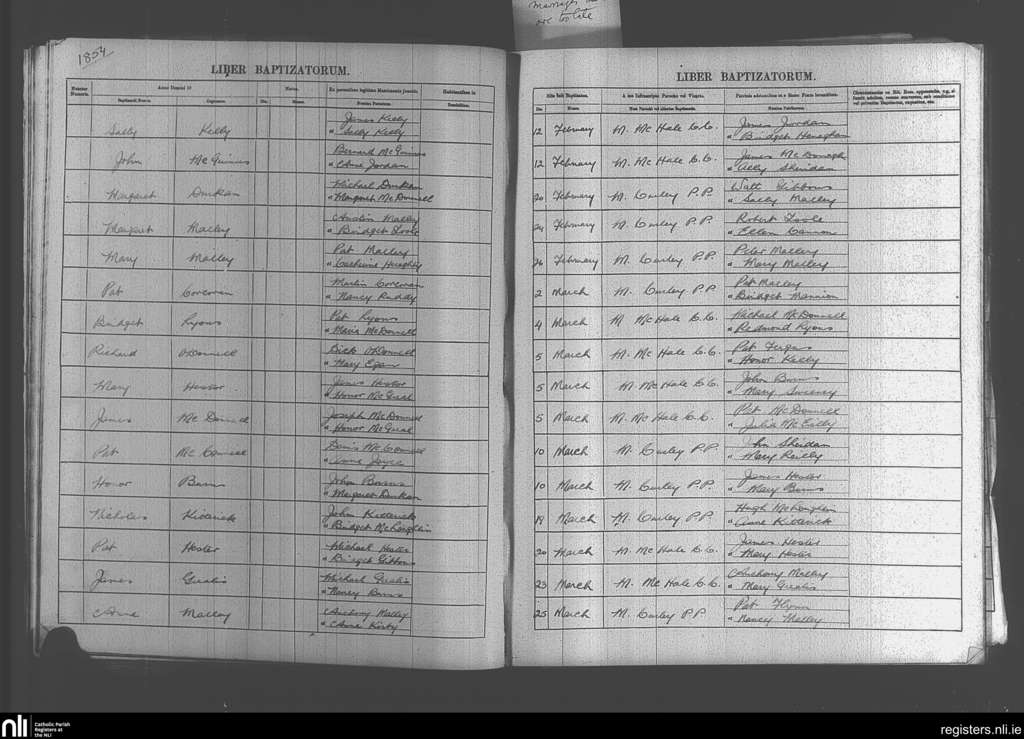 marriages
are too late
1854
LIBER BAPTIZATORUM.
Anno Domini 18
Sally Kelly James Kelly
" Sally Kelly
John McGuinness Bernard McGuinness
" Anne Jordan
Margaret Durkan Michael Durkan
" Margaret McDonnell
Margaret Malley Austin Malley
" Bridget Toole
Mary Malley Pat Malley
" Catherine Heraghty
Pat Corcoran Martin Corcoran
" Nancy Ruddy
Bridget Lyons Pat Lyons
" Maria McDonnell
Richard O'Donnell Dick O'Donnell
" Mary Egan
Mary Hester James Hester
" Honor McGreal
James McDonnell Joseph McDonnell
" Honor McGreal
Pat McConnell Denis McConnell
" Anne Joyce
Honor Burns John Burns
" Margaret Durkan
Nicholas Kitterick John Kitterick
" Bridget McLoughlin
Pat Hester Michael Hester
" Bridget Gibbons
James Michael
" Nancy Burns
Anne Malley Anthony Malley
" Anne Kirby
LIBER BAPTIZATORUM.
12 February M. McHale C.C. James Jordan
" Bridget Heneghan
12 February M. McHale C.C. James McDonagh
" Ally Sheridan
20 February M. Curley P.P. Watt Gibbons
" Sally Malley
24 February M. Curley P.P. Robert Toole
" Ellen Cannon
26 February M. Curley P.P. Peter Malley
" Mary Malley
2 March M. Curley P.P. Pat Malley
" Bridget Mannion
4 March M McHale C.C. Michael McDonnell
" Redmond Lyons
5 March M. McHale C.C. Pat Fergus
" Honor Kelly
5 March M. McHale C.C. John Burns
" Mary Sweeney
5 March M. McHale C.C. Pat McDonnell
" Julia McEvilly
10 March M. Curley P.P. John Sheridan
" Mary Reilly
10 March M. Curley P.P. James Hester
" Mary Burns
19 March M. Curley P.P. Hugh McLoughlin
" Anne Kitterick
20 March M. McHale C.C. James Hester
" Mary Hester
23 March M. McHale C.C. Anthony Malley
" Mary
25 March M. Curley P.P. Pat Flynn
" Nancy Malley
nli Catholic Parish
Registers at
the NLI
registers.nli.ie